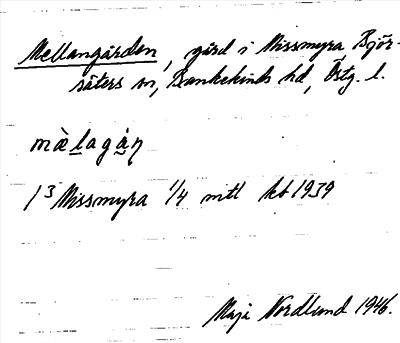 Mellangården, gård i Missmyra Björ-
säters sn, Bankekinds hd, Östg. l.
mὰlagán
1³ Missmyra 1/4 mtl kb 1939
Maja Nordlund 1946.